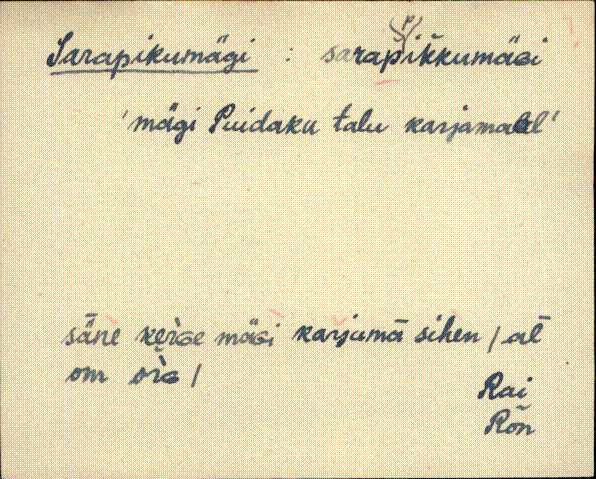 Sarapikumägi : sarapikkumäGi
'mägi Puidaku talu karjamaal'
säne kerGe mäGi karjumā sihen / al
om orG /
Rai
Rõn